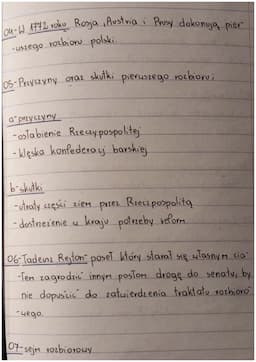 04-W 1772 roku Rosja, Austria i Prusy dokonują pier
-wszego rozbioru polski.
05-Przyczyny oraz skutki pierwszego rozbioru:
a-przyczyny
-osłabienie Rzeczypospolitej
-klęska konfederacji barskiej
b-skutki
-utraty części ziem przez Rzeczpospolitą
-dostrzeżenie w kraju potrzeby reform
06-Tadeusz Rejton-poseł który starał się własnym cia
-łem zagrodzić innym posłom drogę do senatu, by
nie dopuścić do zatwierdzenia traktatu rozbioro
-wego.
07-sejm rozbiorowy